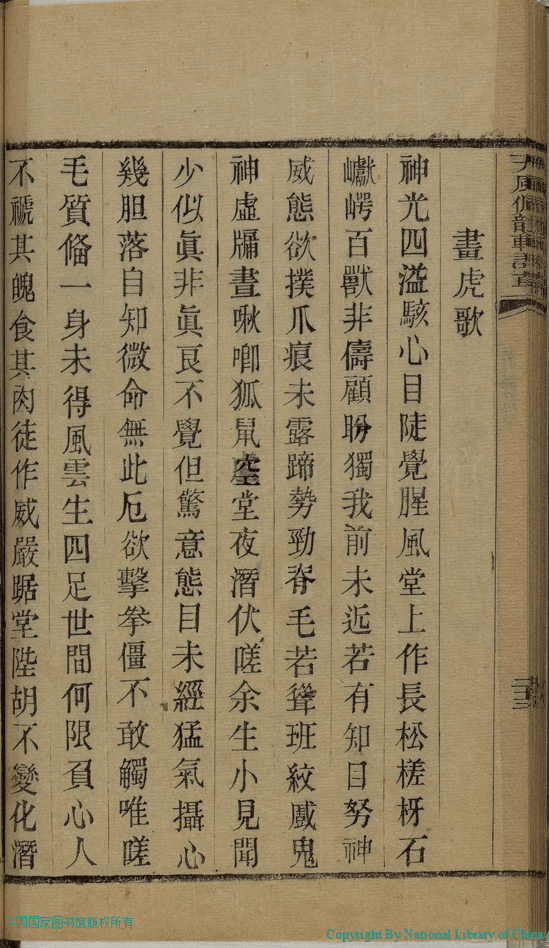 畫虎歌
神光四溢駭心目陡覺腥風堂上作長松槎枒石
巘崿百獸非儔顧盼獨我前未近若有知目努神
威態欲撲爪痕未露蹄勢勁脊毛若聳班紋威鬼
神虛牖晝啾喞狐鼠空堂夜潛伏嗟余生小見聞
少似眞非眞㒵不覺但驚意態目未經猛氣攝心
幾胆落自知微命無此厄欲擊拳僵不敢觸唯嗟
毛質俻一身未得風雲生四足世間何限負心人
不褫其魄食其肉徒作威嚴踞堂陛胡不變化潛
二十三
中国国家图书馆版权所有
Copyright By National Library of China